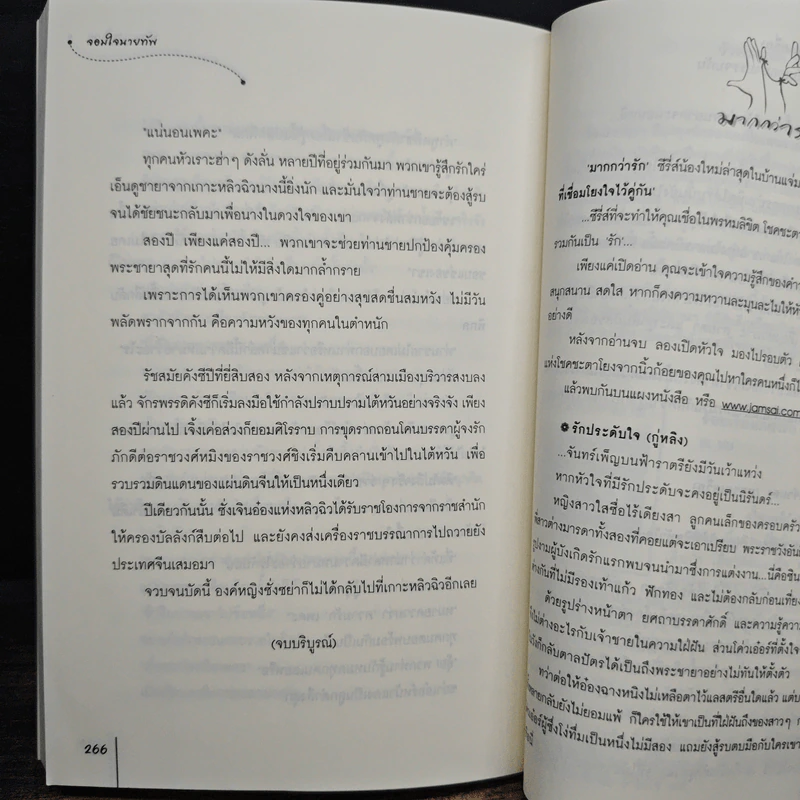 จอมใจนายทัพ
"แน่นอนเพคะ"
ทุกคนหัวเราะฮ่าๆ ดังลั่น หลายปีที่อยู่ร่วมกันมา พวกเขารู้สึกรักใคร่
เอ็นดูชายาจากเกาะหลิวฉิวนางนี้ยิ่งนัก และมั่นใจว่าท่านชายจะต้องสู้รบ
จนได้ชัยชนะกลับมาเพื่อนางในดวงใจของเขา
สองปี เพียงแค่สองปี... พวกเขาจะช่วยท่านชายปกป้องคุ้มครอง
พระชายาสุดที่รักคนนี้ไม่ให้มีสิ่งใดมากล้ำกราย
เพราะการได้เห็นพวกเขาครองคู่อย่างสุขสดชื่นสมหวัง ไม่มีวัน
พลัดพรากจากกัน คือความหวังของทุกคนในตำหนัก
รัชสมัยคังซีปีที่ยี่สิบสอง หลังจากเหตุการณ์สามเมืองบริวารสงบลง
แล้ว จักรพรรดิคังซีก็เริ่มลงมือใช้กำลังปราบปรามไต้หวันอย่างจริงจัง เพียง
สองปีผ่านไป เจิ้งเค่อส่วงก็ยอมศิโรราบ การขุดรากถอนโคนบรรดาผู้จงรัก
ภักดีต่อราชวงศ์หมิงของราชวงศ์ชิงเริ่มคืบคลานเข้าไปในไต้หวัน เพื่อ
รวบรวมดินแดนของแผ่นดินจีนให้เป็นหนึ่งเดียว
ปีเดียวกันนั้น ซั่งเงินอ๋องแห่งหลิวฉิวได้รับราชโองการจากราชสำนัก
ให้ครองบัลลังก์สืบต่อไป และยังคงส่งเครื่องราชบรรณาการไปถวายยัง
ประเทศจีนเสมอมา
จวบจนบัดนี้ องค์หญิงซั่งซย่าก็ไม่ได้กลับไปที่เกาะหลิวฉิวอีกเลย
(จบบริบูรณ์)
266
มากกว่าร
'มากกว่ารัก' ซีรี่ส์น้องใหม่ล่าสุดในบ้านแจ่ม
ที่เชื่อมโยงใจไว้คู่กัน'
...ซีรี่ส์ที่จะทำให้คุณเชื่อในพรหมลิขิต โชคชะตา
รวมกันเป็น 'รัก'...
เพียงแค่เปิดอ่าน คุณจะเข้าใจความรู้สึกของคำว่
สนุกสนาน สดใส หากก็คงความหวานละมุนละไมไม่ให้ห
อย่างดี
หลังจากอ่านจบ ลองเปิดหัวใจ มองไปรอบตัว
แห่งโชคชะตาโยงจากนิ้วก้อยของคุณไปหาใครคนหนึ่งก็ไ
แล้วพบกันบนแผงหนังสือ หรือ www.jamsai.com
รักประดับใจ (กู่หลิง)
...จันทร์เพ็ญบนฟ้าราตรียังมีวันเว้าแหว่ง
หากหัวใจที่มีรักประดับจะคงอยู่เป็นนิรันดร์...
หญิงสาวใสซื่อไร้เดียงสา ลูกคนเล็กของครอบครัว
ที่สาวต่างมารดาทั้งสองที่คอยแต่จะเอาเปรียบ พระราชวังอัน
รูปงามผู้บังเกิดรักแรกพบจนนำมาซึ่งการแต่งงาน...นี่คือซิน
ต่างกันที่ไม่มีรองเท้าแก้ว ฟักทอง และไม่ต้องกลับก่อนเที่ยง
ด้วยรูปร่างหน้าตา ยศถาบรรดาศักดิ์ และความรู้ความ
ไม่ต่างอะไรกับเจ้าชายในความใฝ่ฝัน ส่วนโค่วเอ๋อร์ที่ตั้งใจ
กลับตาลปัตรได้เป็นถึงพระชายาอย่างไม่ทันให้ตั้งตัว
ทว่าต่อให้อ๋องฉางหนิงไม่เหลือตาไว้แลสตรีอื่นใดแล้ว แต่บ
กลับยังไม่ยอมแพ้ ก็ใครใช้ให้เขาเป็นที่ใฝ่ฝันถึงของสาวๆ
ผู้ซึ่งโง่ทึ่มเป็นหนึ่งไม่มีสอง แถมยังสู้รบตบมือกับใครเขา